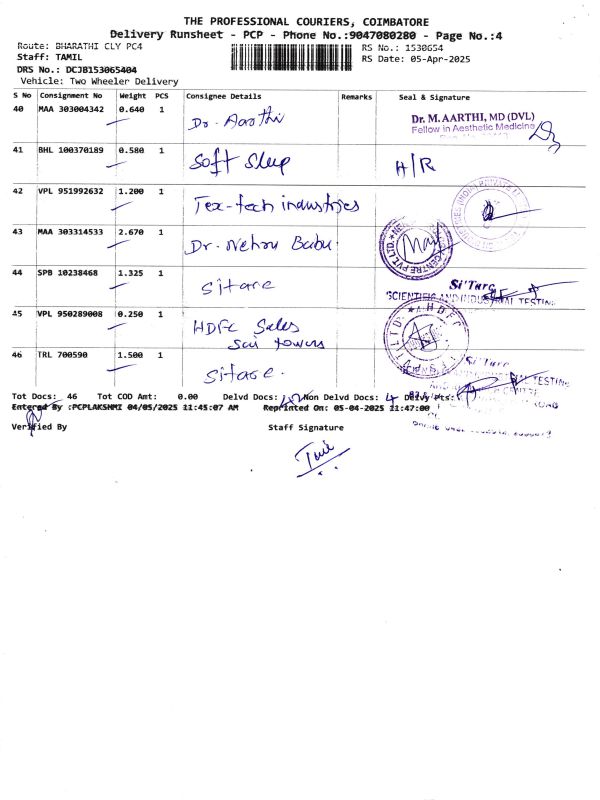 THE PROFESSIONAL COURIERS, COIMBATORE
Delivery Runsheet - PCP - Phone No.:9047080280 - Page No.:4
Route: BHARATHI CLY PC4
RS No.: 1530654
Staff: TAMIL
RS Date: 05-Apr-2025
DRS No.: DCJB153065404
Vehicle: Two Wheeler Delivery
S No Consignment No Weight PCS Consignee Details Remarks Seal & Signature
40 MAA 303004342 0.640 1 Dr. Aarthi
Dr. M. AARTHI, MD (DVL)
Fellow in Aesthetic Medicine
41 BHL 100370189 0.580 1 Soft Sleep H/R
42 VPL 951992632 1.200 1 Tex-tech industries
43 MAA 303314533 2.670 1 Dr. Nehru Babu
CENTRE PVT LTD
44 SPB 10238468 1.325 1 Sitarc
Si'Tarc
SCIENTIFIC AND INDUSTRIAL TESTING
45 VPL 950289008 0.250 1 HDFC Sales
Sai towers
HDFC
46 TRL 700590 1.500 1 Sitarc.
Si'Tarc
TESTING
Tot Docs: 46 Tot COD Amt: 0.00 Delvd Docs: 42 Non Delvd Docs: 4 Delvy Pts:
Entered By :PCPLAKSHMI 04/05/2025 11:45:07 AM Reprinted On: 05-04-2025 11:47:00
Verified By Staff Signature